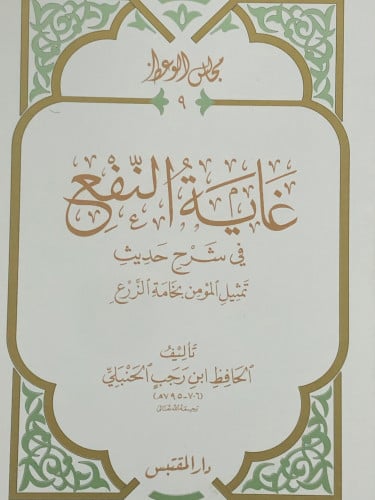 مجالس الوعظ
٩
غَايَةُ النَّفْعِ
فِي شَرْحِ حَدِيثِ
تَمْثِيلِ المُؤْمِنِ بِخَامَةِ الزَّرْعِ
تَأْلِيفُ
الحَافِظِ ابنِ رَجَبٍ الحَنْبَلِيِّ
(٧٠٦-٧٩٥هـ)
رحمه الله تعالى
دار المقتبس